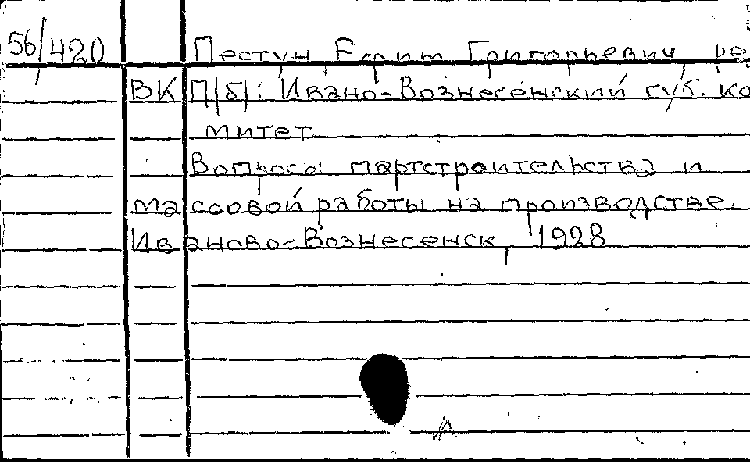 56/420 Пестун, Ефим Григорьевич, ре
ВКП/б/. Ивано-Вознесенский губ. ко
митет
Вопросы партстроительства и
массовой работы на производстве.
Иваново-Вознесенск, 1928
А